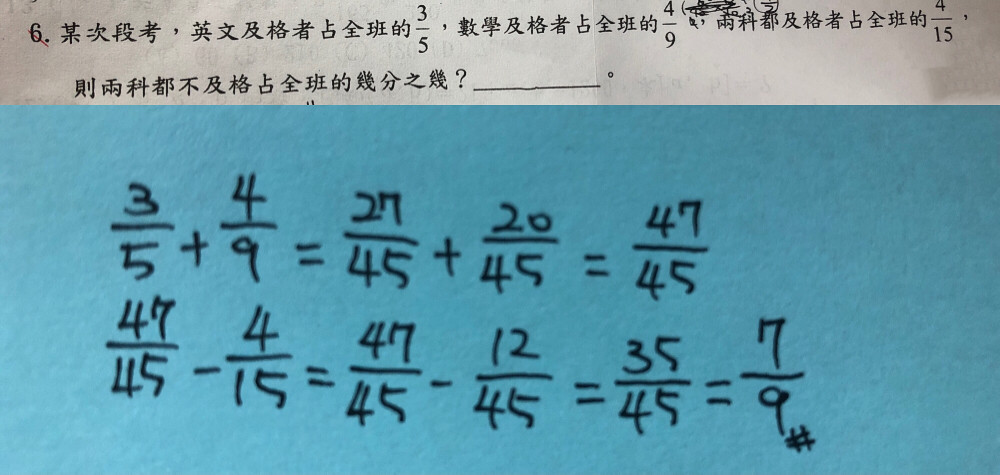 6. 某次段考，英文及格者占全班的3/5，數學及格者占全班的4/9，兩科都及格者占全班的4/15，
則兩科都不及格占全班的幾分之幾？__________。
3/5 + 4/9 = 27/45 + 20/45 = 47/45
47/45 - 4/15 = 47/45 - 12/45 = 35/45 = 7/9 #